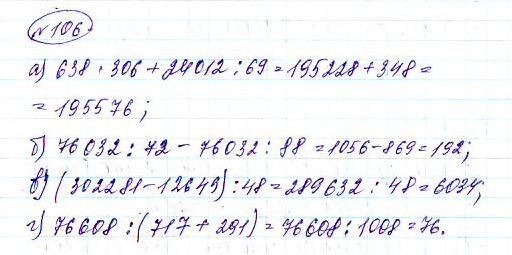 №106.
а) 638 · 306 + 24012 : 69 = 195228 + 348 =
= 195576;
б) 76032 : 72 - 76032 : 88 = 1056 - 869 = 192;
в) (302281 - 12649) : 48 = 289632 : 48 = 6034;
г) 76608 : (717 + 291) = 76608 : 1008 = 76.